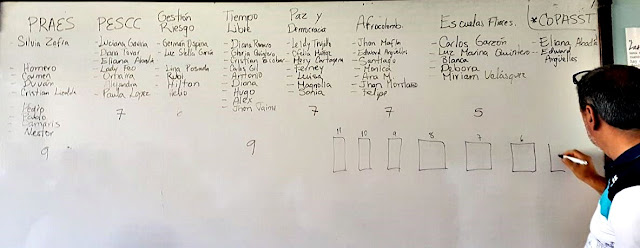 PRAES
Silvia Zafra
- Homero
- Carmen
- Duván
- Cristian Loaiza
- Néstor
9
PESCC
- Luciana García
- Diana Tovar
- Eliana Abadía
- Lady Pao
- Alejandra
- Paula López
7
Gestión
Riesgo
- Germán Ospina
- Luz Stella García
- Lina Posada
- Rubí
- Hilton
Tiempo
Libre
- Diana Romero
- Gloria Quintero
- Cristian Escobar
- Carlos Gil
- Antonio
- Diana
- Hugo
- Alex
- Jhon Jaime
9
Paz y
Democracia
- Leidy Trujillo
- Ofelia Muñoz
- Mery Cartagena
- Ferney
- Luisa
- Magnolia
- Sonia
7
Afrocolomb.
- Jhon Mafla
- Edward Arguelles
- Santiago
- Monica
- Ana M.
- Jhon Mortalaso
- Felipe
7
Escuelas Flores.
- Carlos Garzón
- Luz Marina Quintero
- Blanca
- Debora
- Miriam Velásquez
5
*COPASST
- Eliana Abadía
- Edward
Arguelles
11 10 9 8 7 6